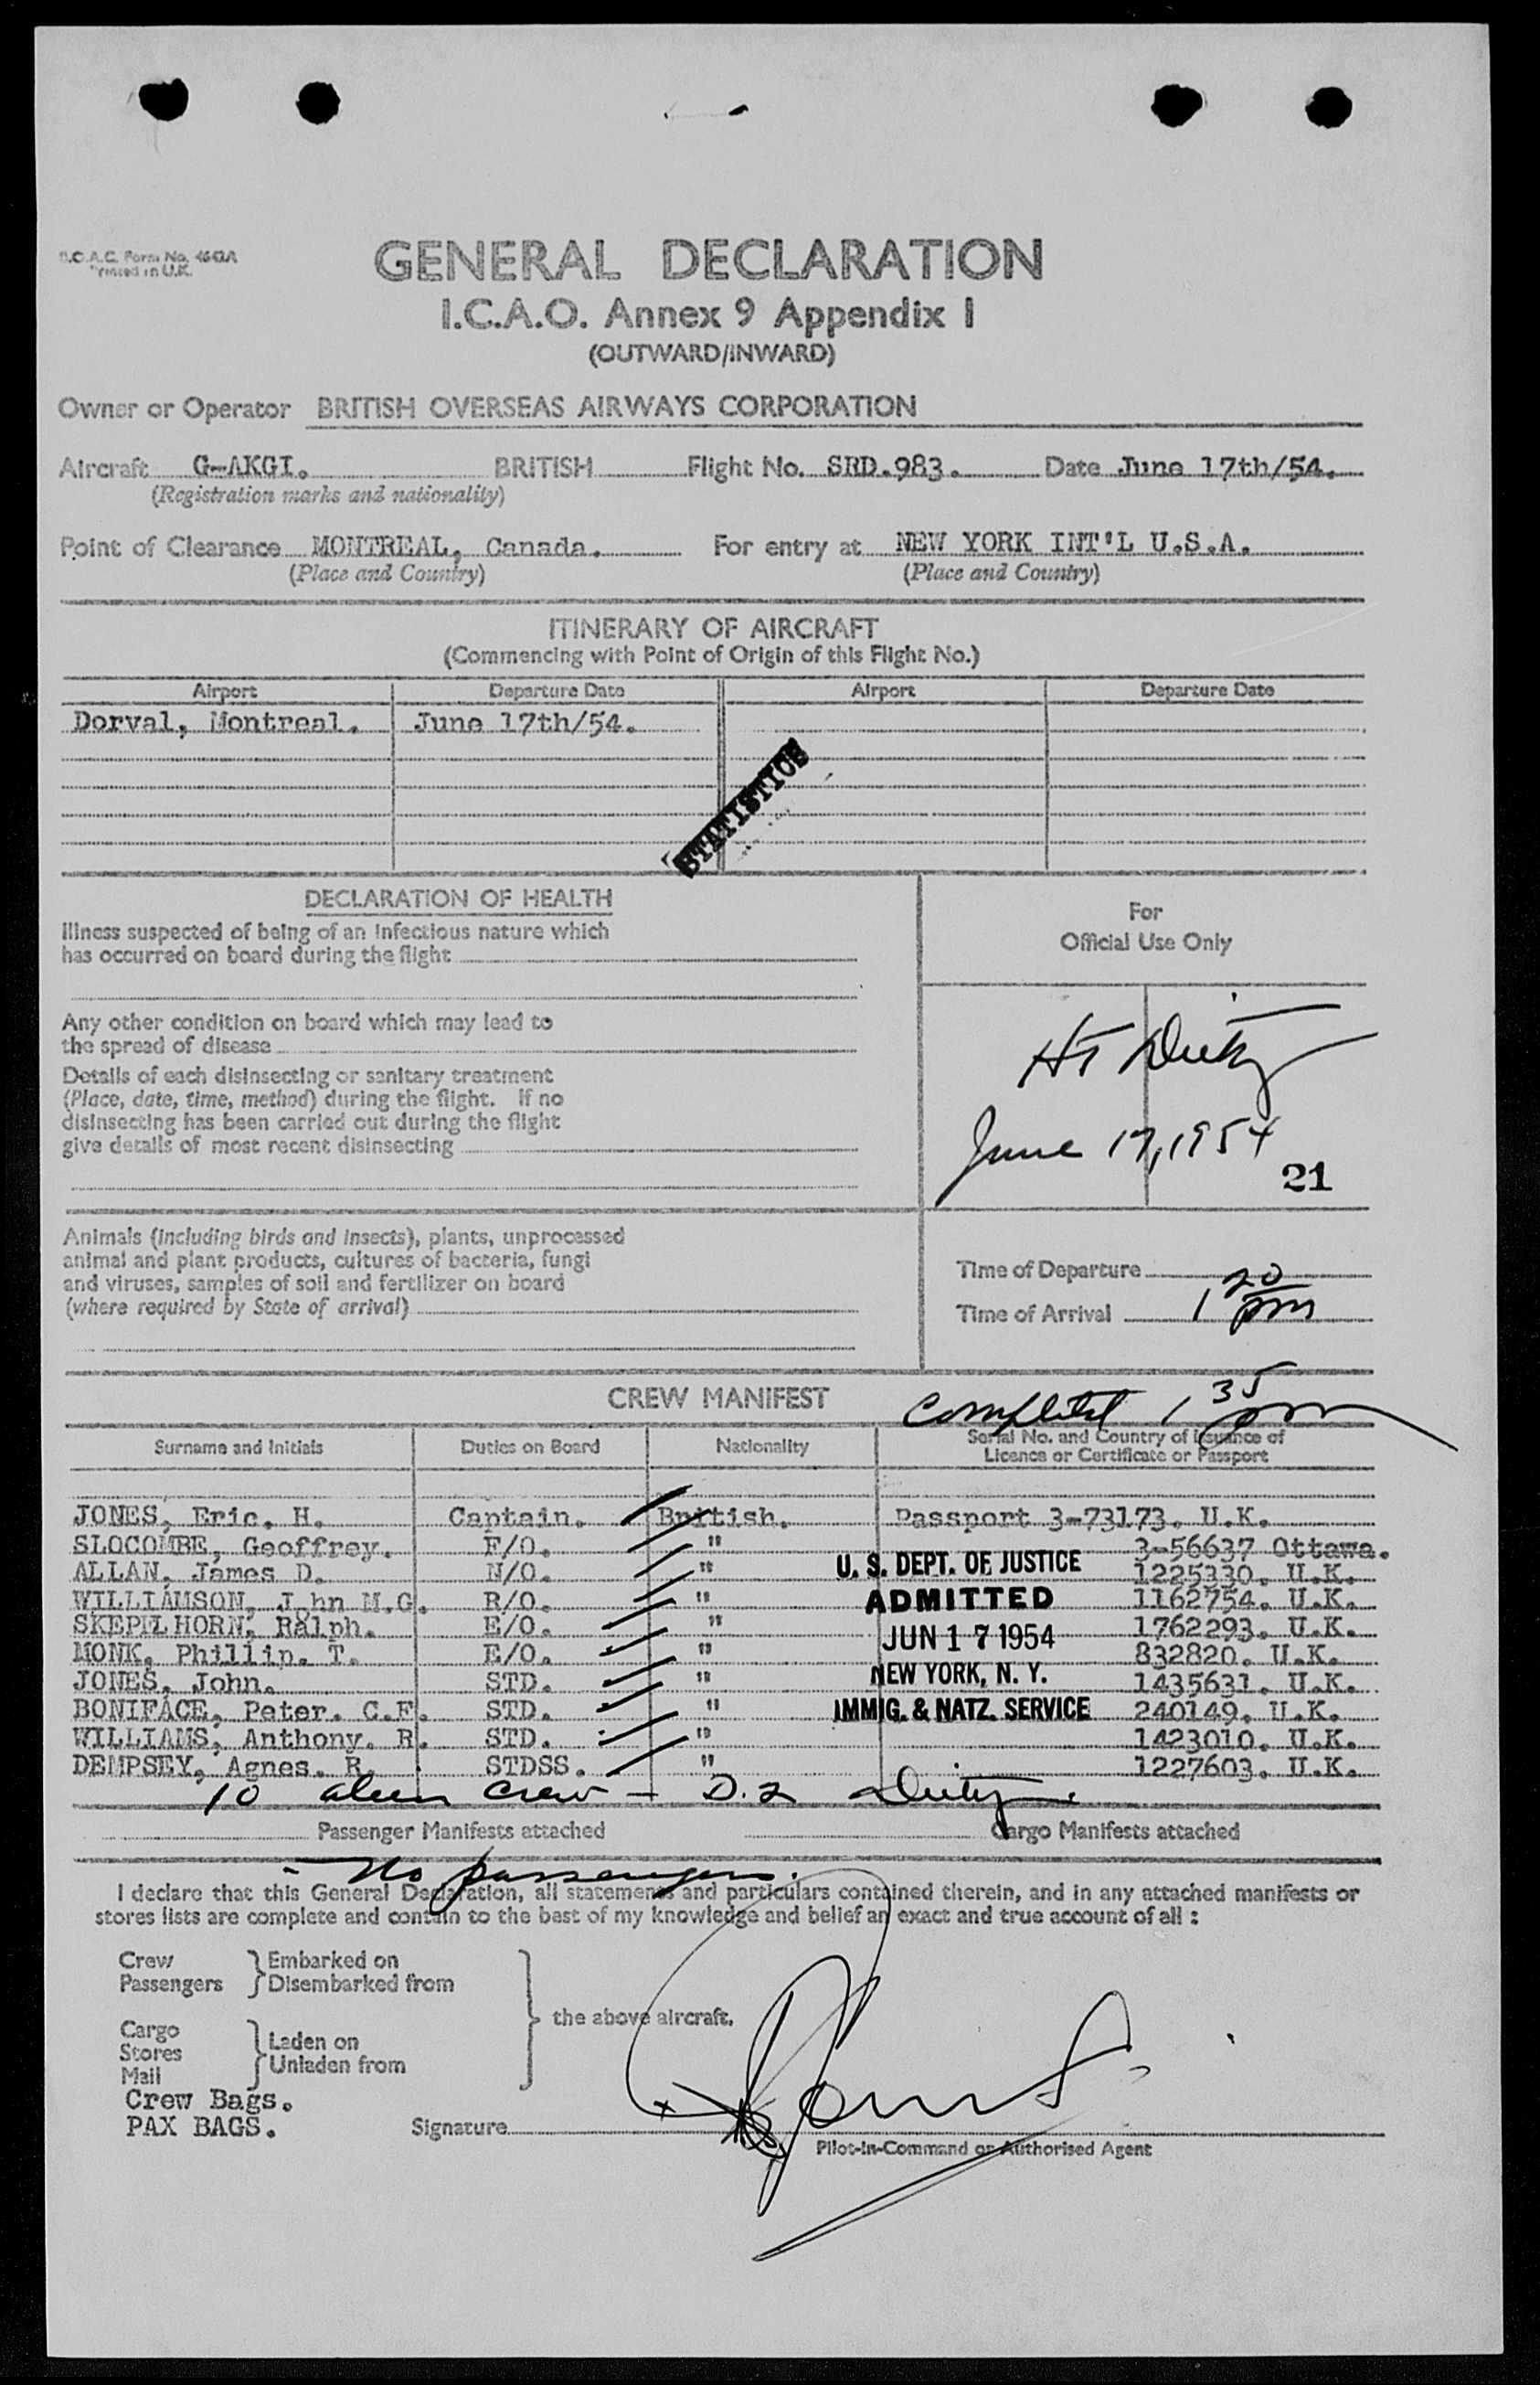 B.O.A.C. Form No. 4643A
Printed in U.K.
GENERAL DECLARATION
I.C.A.O. Annex 9 Appendix I
(OUTWARD/INWARD)
Owner or Operator BRITISH OVERSEAS AIRWAYS CORPORATION
Aircraft G-AKGI. BRITISH Flight No. SRD.983. Date June 17th/54.
(Registration marks and nationality)
Point of Clearance MONTREAL, Canada. For entry at NEW YORK INT'L U.S.A.
(Place and Country) (Place and Country)
ITINERARY OF AIRCRAFT
(Commencing with Point of Origin of this Flight No.)
Airport Departure Date Airport Departure Date
Dorval, Montreal. June 17th/54.
STATISTICS
DECLARATION OF HEALTH
Illness suspected of being of an infectious nature which
has occurred on board during the flight
Any other condition on board which may lead to
the spread of disease
Details of each disinsecting or sanitary treatment
(Place, date, time, method) during the flight. If no
disinsecting has been carried out during the flight
give details of most recent disinsecting
For
Official Use Only
June 17, 1954
21
Animals (including birds and insects), plants, unprocessed
animal and plant products, cultures of bacteria, fungi
and viruses, samples of soil and fertilizer on board
(where required by State of arrival)
Time of Departure
Time of Arrival 1 20 pm
CREW MANIFEST Completed 1 35 pm
Surname and Initials Duties on Board Nationality Serial No. and Country of Issuance of
Licence or Certificate or Passport
JONES, Eric. H. Captain. British. Passport 3-73173. U.K.
SLOCOMBE, Geoffrey. F/O. " 3-56637 Ottawa.
ALLAN, James D. N/O. " 1225330. U.K.
WILLIAMSON, John M.G. R/O. " 1162754. U.K.
SKEPELHORN, Ralph. E/O. " 1762293. U.K.
MONK, Phillip. T. E/O. " 832820. U.K.
JONES, John. STD. " 1435631. U.K.
BONIFACE, Peter. C.F. STD. " 240149. U.K.
WILLIAMS, Anthony. R. STD. " 1423010. U.K.
DEMPSEY, Agnes. R. STDSS. " 1227603. U.K.
U. S. DEPT. OF JUSTICE
ADMITTED
JUN 17 1954
NEW YORK, N. Y.
IMMIG. & NATZ. SERVICE
10 alien crew - D.2
Passenger Manifests attached Cargo Manifests attached
- No passengers.
I declare that this General Declaration, all statements and particulars contained therein, and in any attached manifests or
stores lists are complete and contain to the best of my knowledge and belief an exact and true account of all :
Crew Embarked on
Passengers Disembarked from
the above aircraft.
Cargo
Stores Laden on
Mail Unladen from
Crew Bags.
PAX BAGS.
Signature
Pilot-in-Command or Authorised Agent